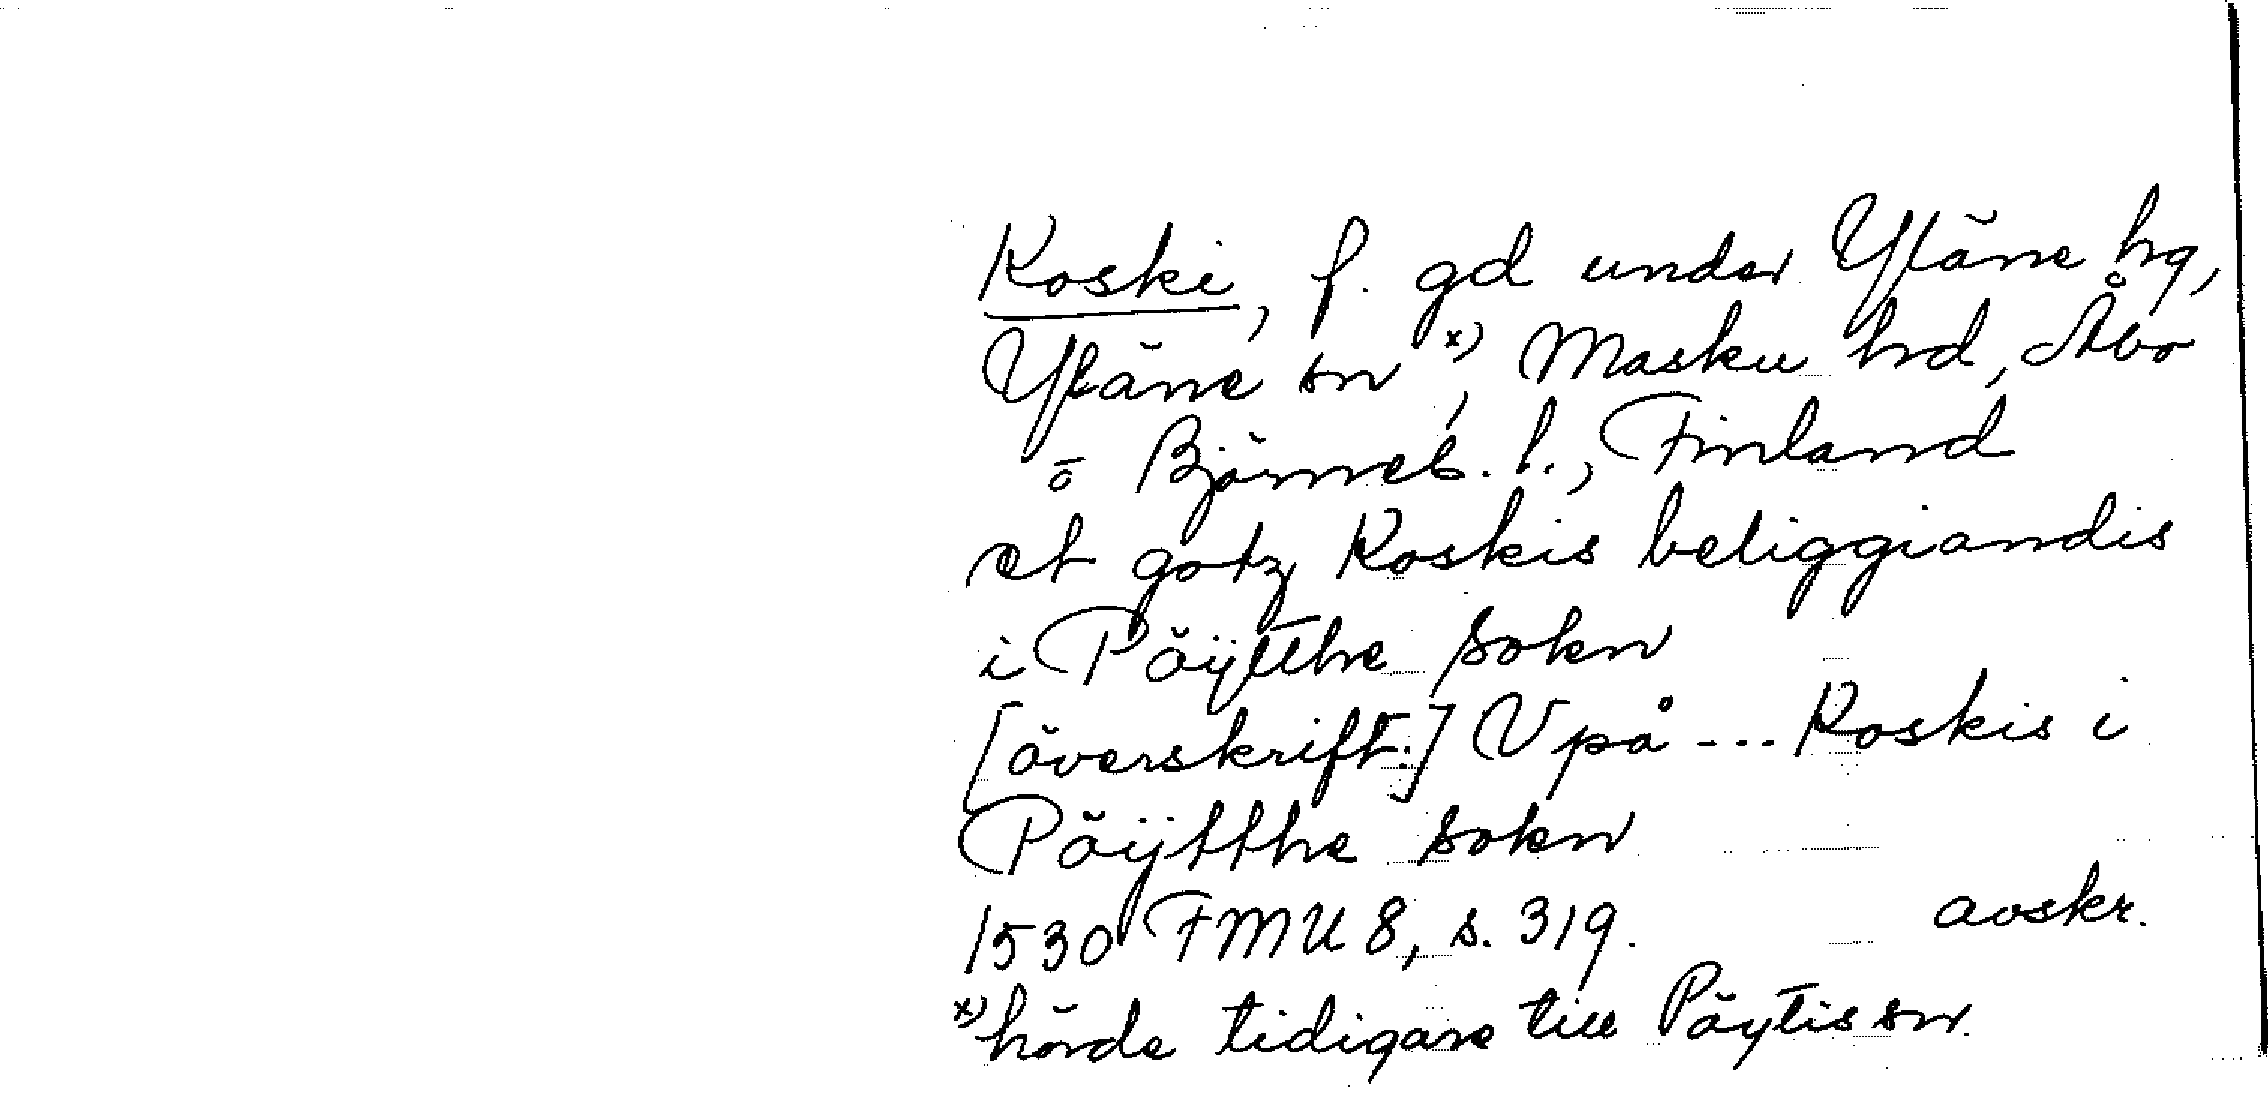 Koski, f. gd under Yläne hg,
Yläne sn x), Masku hd, Åbo
o Björneb. l., Finland
et gotz Koskis beliggiandis
i Pöÿtthe sokn
[överskrift:] Vpå --- Koskis i
Pöÿtthe sokn
1530 FMU 8, s. 319. avskr.
x) hörde tidigare till Pöytis sn.